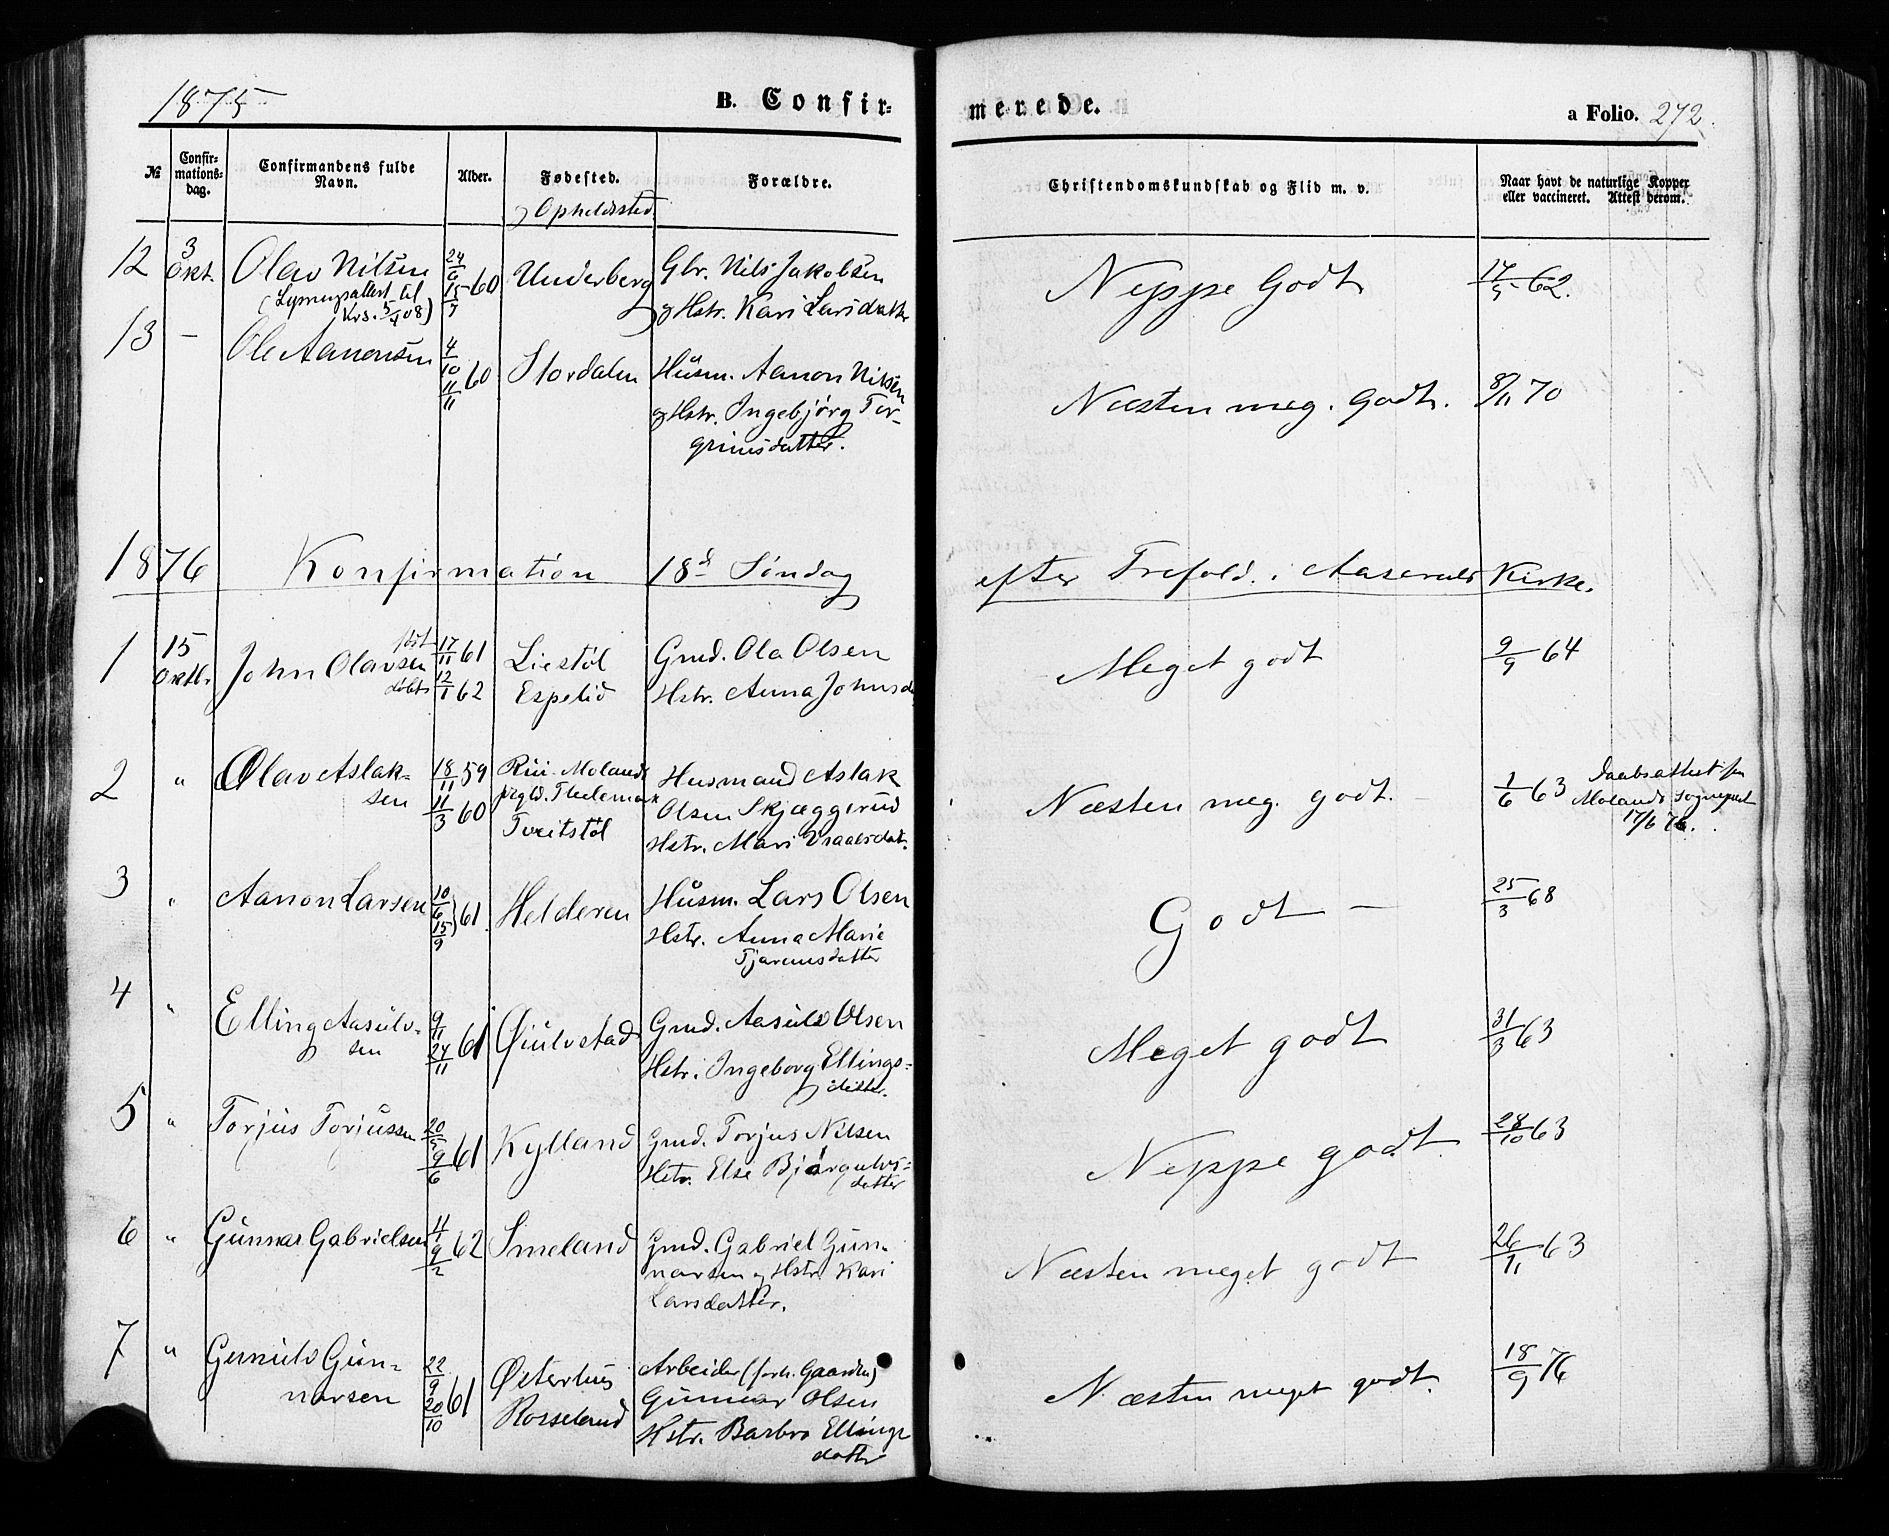 1875
B. Confir-
merede.
a Folio. 272.
№
Confir-
mations-
dag.
Confirmandens fulde
Navn.
Alder.
Fødested.
og Opholdssted.
Forældre.
Christendomskundskab og Flid m. v.
Naar havt de naturlige Kopper
eller vaccineret. Attest derom.
12 3 Okt. Olav Nilsen 24/6 15/7 60 Underberg Gbr. Nils Jakobsen
og Hstr. Kari Larsdatter
Neppe Godt 17/5 62.
13 – Ole Aanonsen 4/10 11/11 60 Stordalen Husm. Aanon Nilsen
og Hstr. Ingebjørg Tor-
grimsdatter.
Næsten meg. Godt. 8/11 70
1876 Konfirmation 18d Søndag
efter Trefold. i Aaseruls Kirke.
1 15 Oktb. John Olavsen født 17/11 61 døbt 12/1 62
Liestøl
Espelid
Gmd. Ola Olsen
Hstr. Anna Johnsd.
Meget godt 9/9 64
2 " Olav Aslak-
sen
18/11 59
11/3 60
Molands
prgld. Thelemark
Tveitstøl
Husmand Aslak
Olsen Skjæggerud
Hstr. Mari
Næsten meg. godt. 1/6 63
Daabsattest fra
Molands Sognepræst
17/6 76.
3 " Aanon Larsen 10/6 15/9 61 Helderen Husm. Lars Olsen
Hstr. Anna Marie
Tjarensdatter
Godt – 25/3 68
4 " Elling Aasulv-
sen
9/11 24/11 61 Øiulvstad Gmd. Aasulv Olsen
Hstr. Ingeborg Ellings-
datter.
Meget godt 31/3 63
5 " Torjus Torjussen 20/5 9/6 61 Kylland Gmd. Torjus Nilsen
Hstr. Else Bjørgulvs-
datter
Neppe godt 28/10 63
6 " Gunnar Gabrielsen 11/1 9/2 62 Smeland Gmd. Gabriel Gun-
narsen og Hstr. Kari
Larsdatter.
Næsten meget godt 26/11 63
7 " Gunulv Gun-
narsen
22/9 20/10 61
Østerhus
Rosseland
Arbeider (forh. Gaardm)
Gunnar Olsen
Hstr. Barbro Ellings
datter
Næsten meget godt. 18/9 76